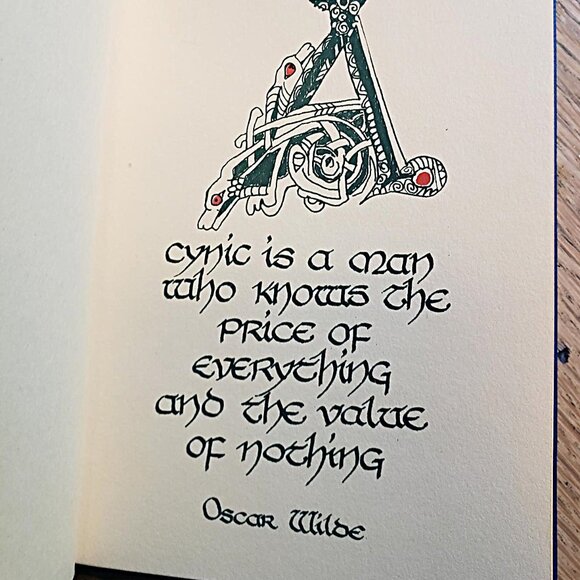 A
cynic is a man
who knows the
price of
everything
and the value
of nothing
Oscar Wilde